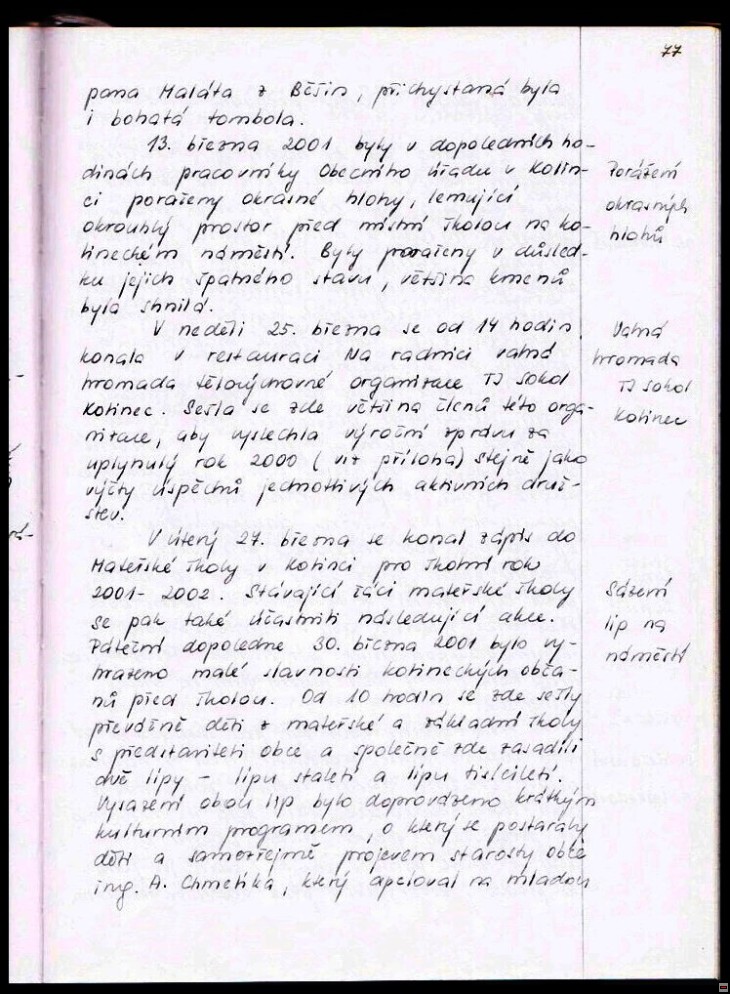 77
pana Maláta z Běšin, přichystaná byla
i bohatá tombola.
13. března 2001 byly v dopoledních ho-
dinách pracovníky Obecního úřadu v Kolin-
ci poraženy okrasné hlohy, lemující
okrouhlý prostor před místní školou na ko-
lineckém náměstí. Byly poraženy v důsled-
ku jejich špatného stavu, většina kmenů
byla shnilá.
Porážení
okrasných
hlohů
V neděli 25. března se od 14 hodin
konala v restauraci Na radnici valná
hromada tělovýchovné organizace TJ Sokol
Kolinec. Sešla se zde většina členů této orga-
nizace, aby vyslechla výroční zprávu za
uplynulý rok 2000 (viz příloha) stejně jako
výčty úspěchů jednotlivých aktivních druž-
stev.
Valná
hromada
TJ Sokol
Kolinec
V úterý 27. března se konal zápis do
Mateřské školy v Kolinci pro školní rok
2001- 2002. Stávající žáci mateřské školy
se pak také účastnili následující akce.
Páteční dopoledne 30. března 2001 bylo vy-
hrazeno malé slavnosti kolineckých obča-
nů před školou. Od 10 hodin se zde sešly
převážně děti z mateřské a základní školy
s představiteli obce a společně zde zasadili
dvě lípy - lípu staletí a lípu tisíciletí.
Vysazení obou lip bylo doprovázeno krátkým
kulturním programem, o který se postaraly
děti a samozřejmě projevem starosty obce
ing. A. Chmelíka, který apeloval na mladou
Sázení
lip na
náměstí